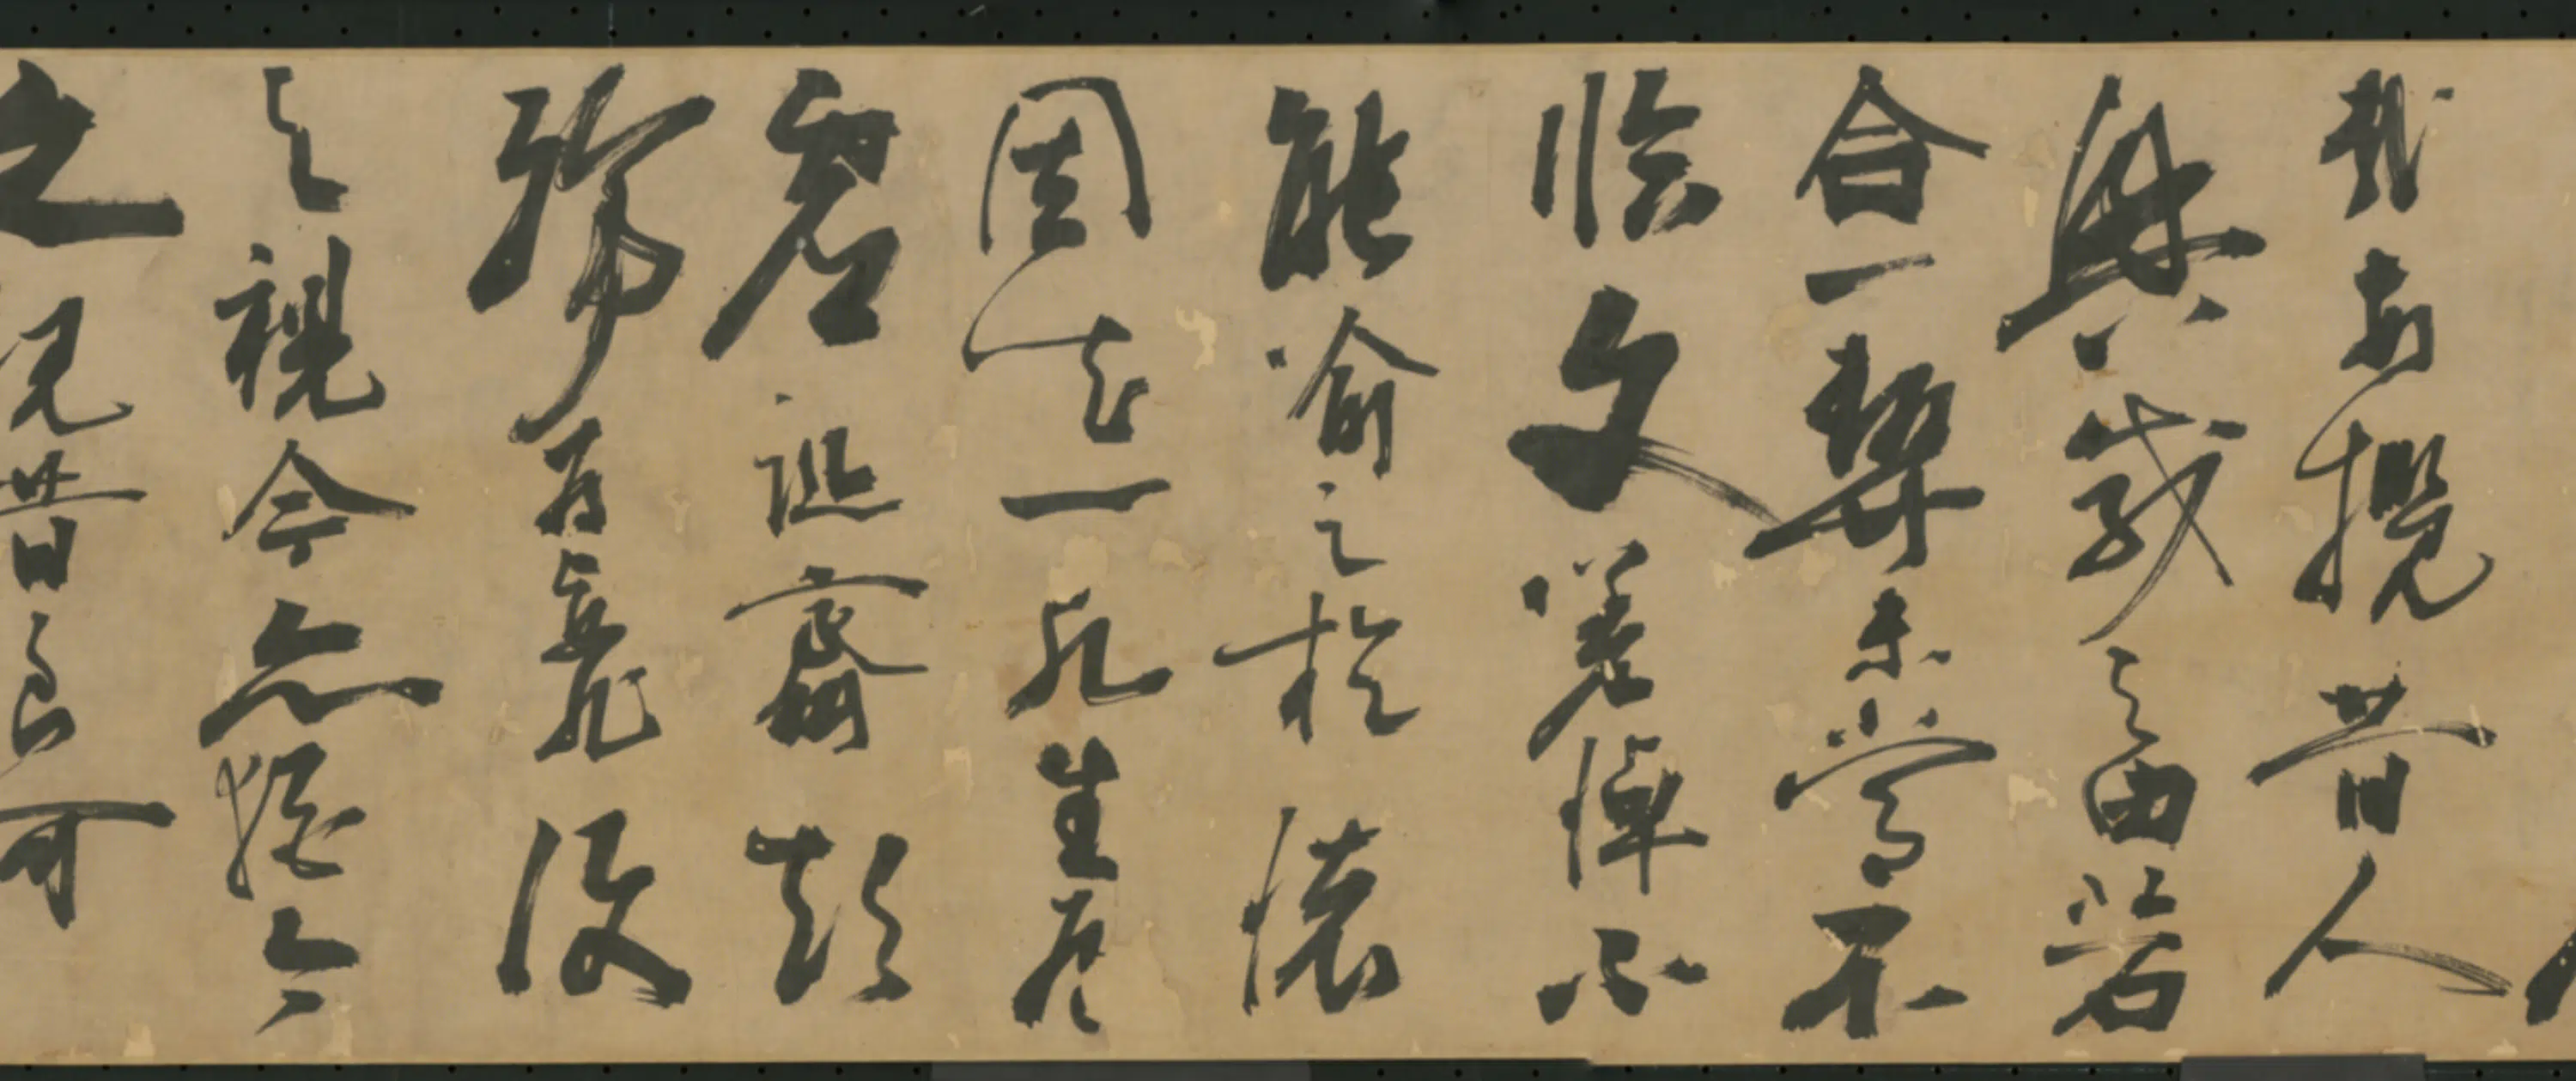 哉每攬昔人
興感之由若
合一契未嘗不
臨文嗟悼不
能喻之於懷
固知一死生為
虛誕齊彭
殤為妄作後
之視今亦猶今
之視昔良可